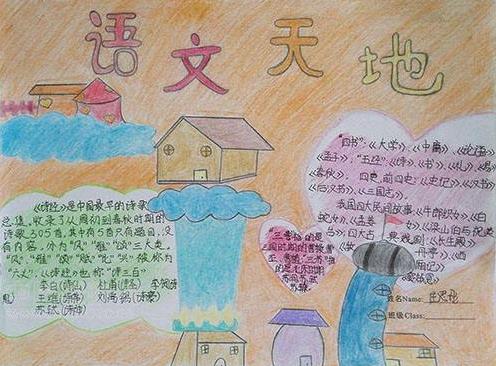 语文天地
《诗经》是中国最早的诗歌
总集,收录了从周初到春秋时期的
诗歌305首,其中有5首只有题目,没
有内容,分为"风""雅""颂"三大类。
"风""雅""颂""赋""比""兴"被称为
"六义",《诗经》也称"诗三百"
李白(诗仙) 杜甫(诗圣) 李贺(诗
鬼)
王维(诗佛) 刘禹锡(诗豪)
苏轼(诗神)
"四书":《大学》、《中庸》、《论语》
《孟子》;"五经":《诗》、《书》、《礼》、《易》
《春秋》。四史,前四史:《史记》、《汉书》
《后汉书》、《三国志》。
我国四大民间故事:《牛郎织女》、《白
蛇传》、《孟姜
《梁山伯与祝英
台》;四大古
典戏剧:《长生殿》
"三曹"指的是
三国时期的曹操曹
丕、曹植,"三苏"指
的是
苏洵苏轼
苏辙。
姓名Name:
班级Class: